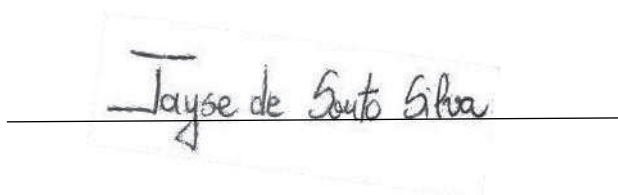 Jayse de Souto Silva